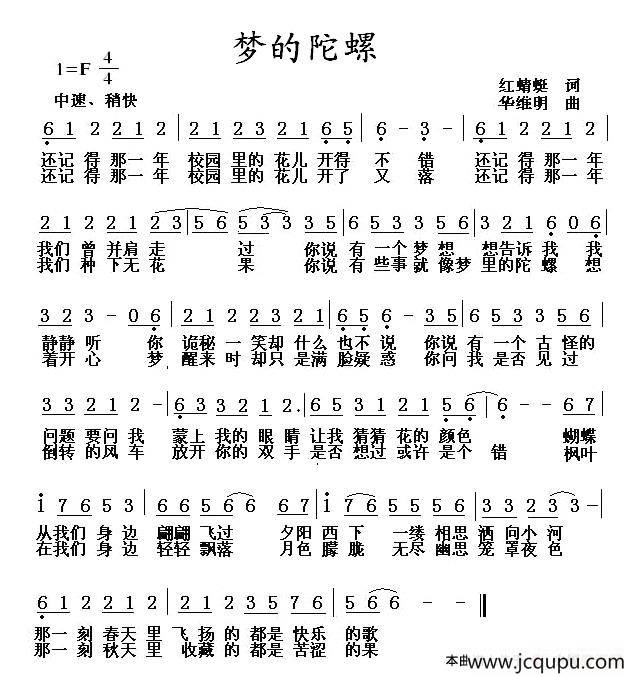 梦的陀螺
1=F 4/4
中速、稍快
红蜻蜓 词
华维明 曲
6 1 2 2 1 2 | 2 1 2 1 2 1 6 5 | 6 - 3 - | 6 1 2 2 1 2 |
还记得那一年 校园里的花儿开得不错 还记得那一年
还记得那一年 校园里的花儿开了又落 还记得那一年
2 1 2 1 2 2 3 | 5 6 5 3 3 3 5 | 6 5 3 3 5 3 | 3 2 2 1 6 0 6 |
我们曾并肩走过 你说有一个梦想 想告诉我 我
我们种下无花果 你说有些事就像梦里的陀螺 想
3 2 3 - 0 6 | 2 1 2 1 2 3 2 1 | 6 5 6 - 3 5 | 6 5 3 3 5 6 |
静静听 你诡秘一笑却什么也不说 你说有一个古怪的
着开心 梦醒来时却只是满脸疑惑 你问我是否见过
3 3 2 1 2 - | 6 3 3 2 3 2 1 2. 1 | 6 5 3 1 2 1 5 6 | 6 - - 6 7 |
问题要问我 蒙上我的眼睛让我猜猜花的颜色 蝴蝶
倒转的风车 放开你的双手是否想过或许是个错 枫叶
1 7 6 5 3 | 5 5 5 6 6 | 3 5 7 6 5 | 5 5 5 6 5 6 | 3 3 2 3 3 |
从我们身边翩翩飞过 夕阳西下 一缕相思洒向小河
在我们身边轻轻飘落 月色朦胧 无尽幽思笼罩夜色
6 1 2 2 1 2 | 2 1 2 3 5 7 6 | 5 6 6 - - ‖
那一刻春天里飞扬的都是快乐的歌
那一刻秋天里收藏的都是苦涩的果
本曲
www.jcqupu.com